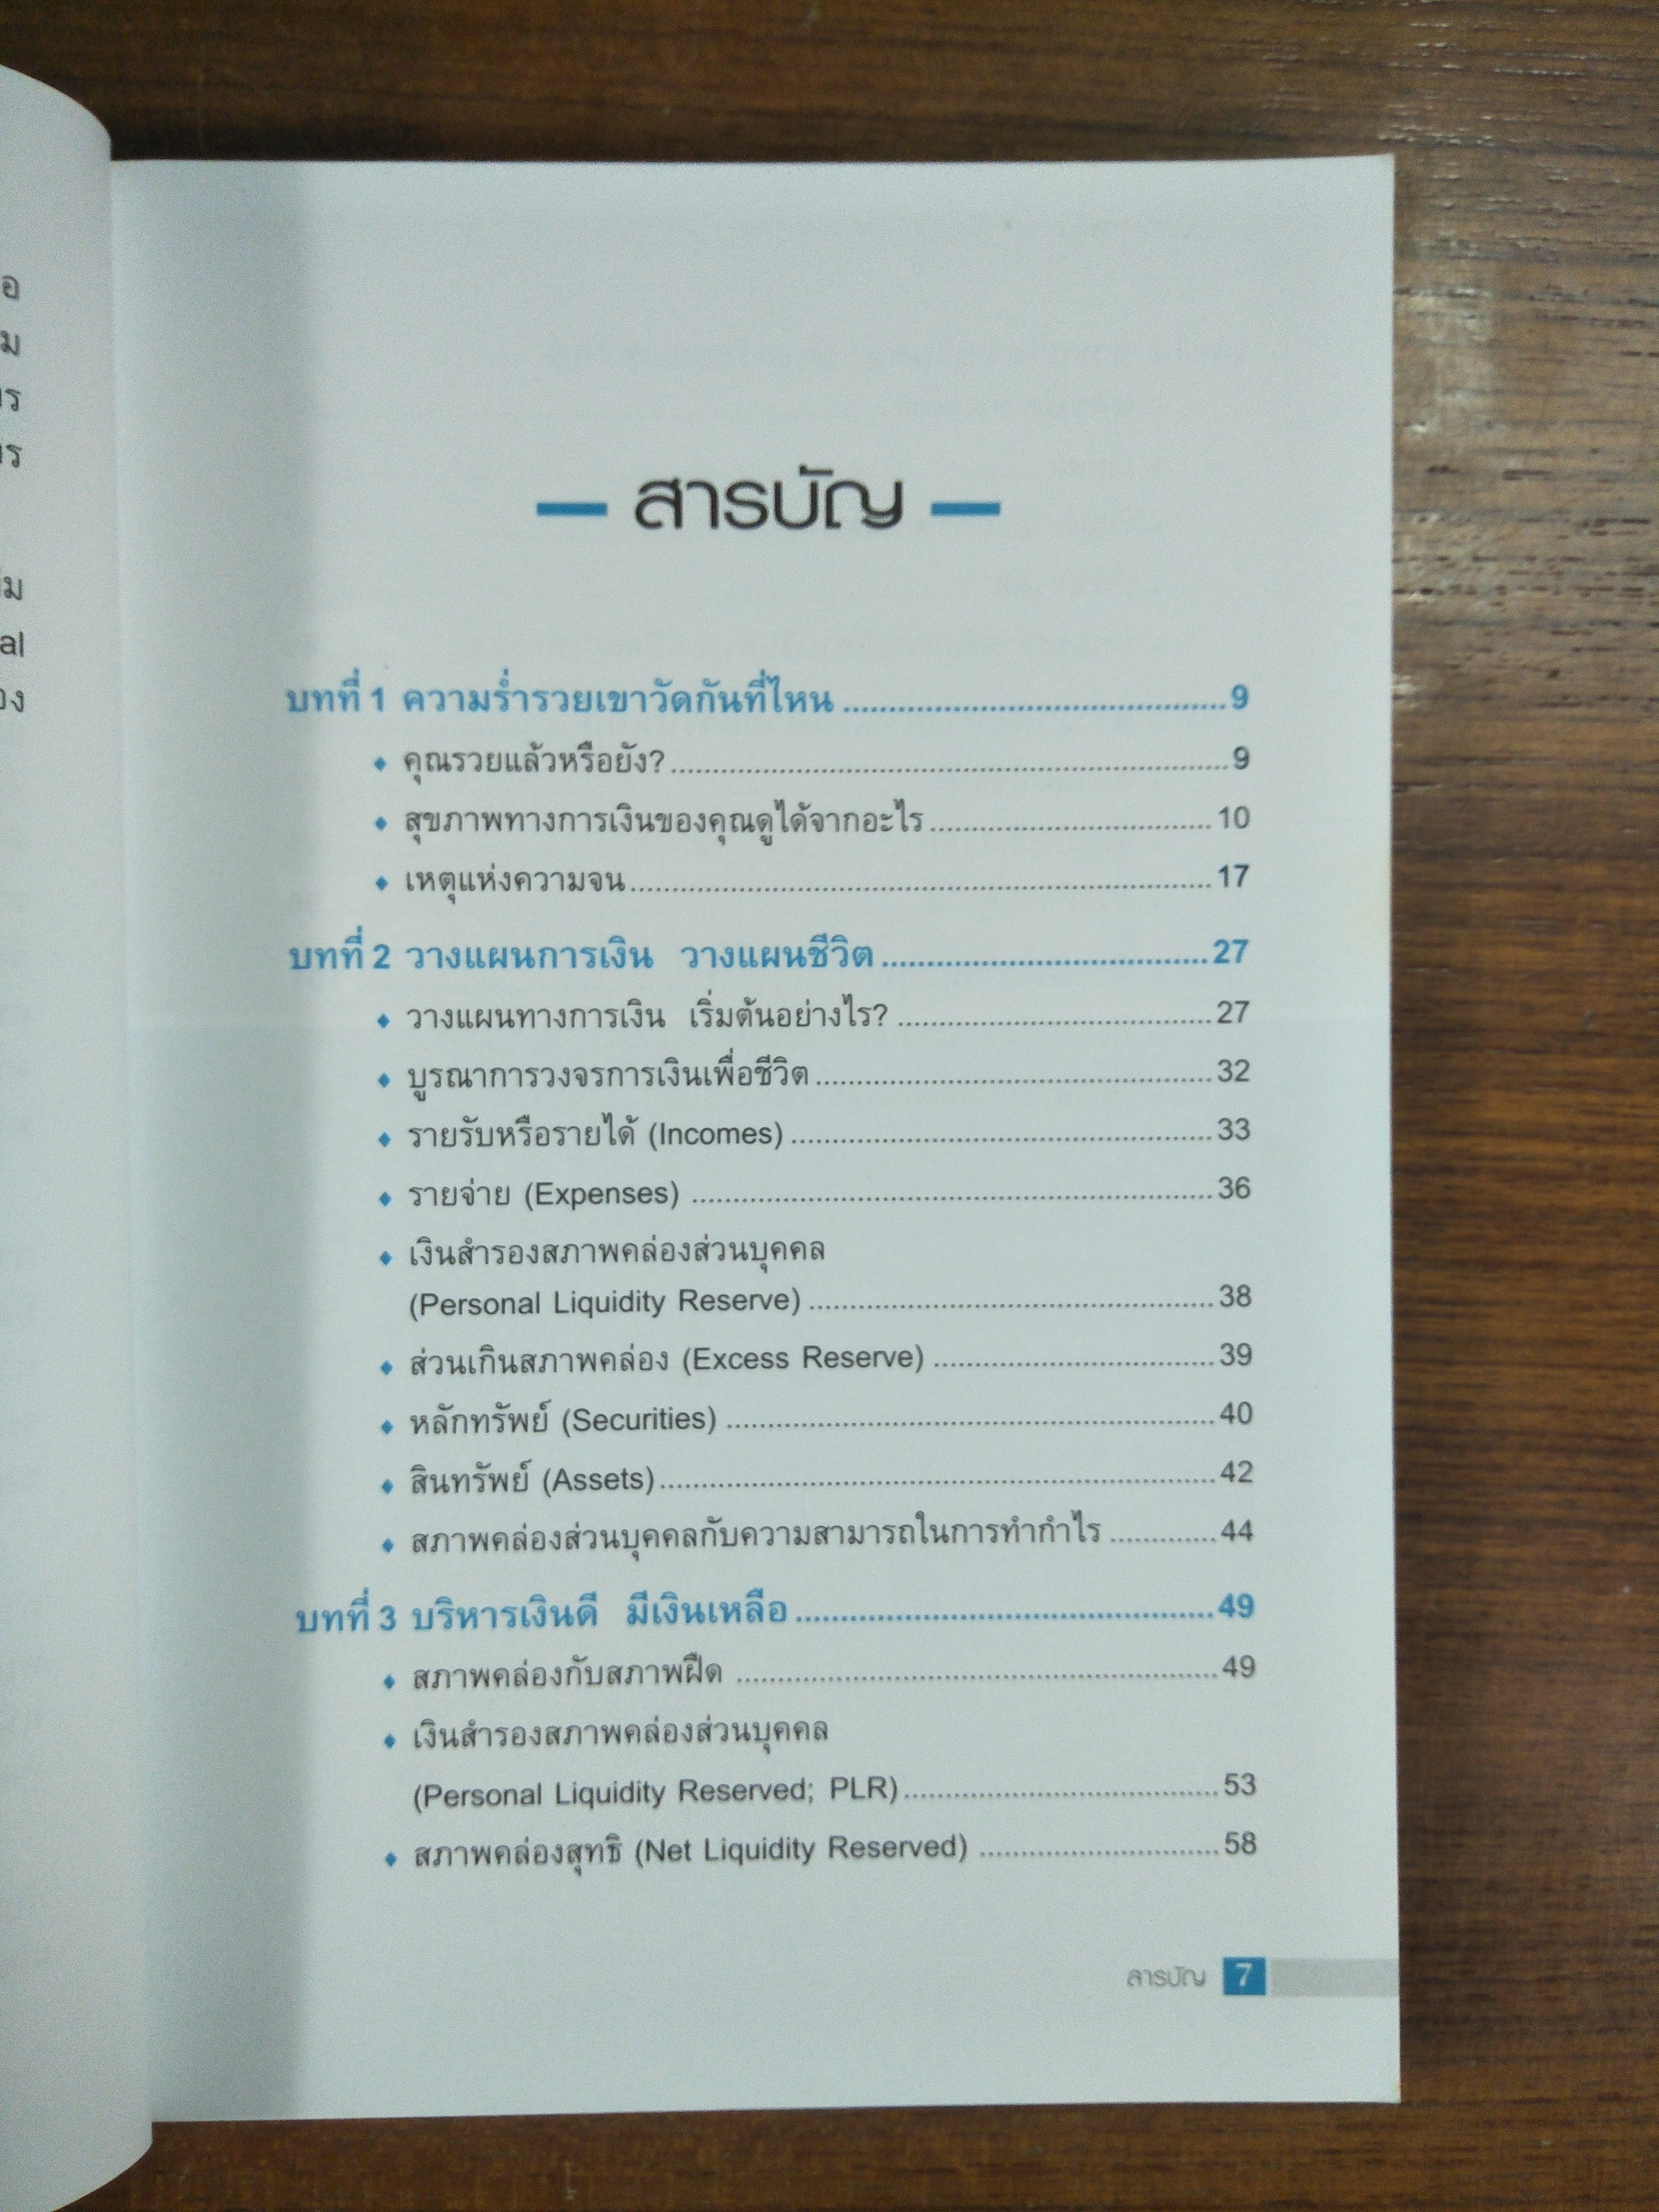 สารบัญ
บทที่ 1 ความร่ำรวยเขาวัดกันที่ไหน ........................................... 9
◆ คุณรวยแล้วหรือยัง? ........................................... 9
◆ สุขภาพทางการเงินของคุณดูได้จากอะไร ........................................... 10
◆ เหตุแห่งความจน ........................................... 17
บทที่ 2 วางแผนการเงิน วางแผนชีวิต ........................................... 27
◆ วางแผนทางการเงิน เริ่มต้นอย่างไร? ........................................... 27
◆ บูรณาการวงจรการเงินเพื่อชีวิต ........................................... 32
◆ รายรับหรือรายได้ (Incomes) ........................................... 33
◆ รายจ่าย (Expenses) ........................................... 36
◆ เงินสำรองสภาพคล่องส่วนบุคคล
(Personal Liquidity Reserve) ........................................... 38
◆ ส่วนเกินสภาพคล่อง (Excess Reserve) ........................................... 39
◆ หลักทรัพย์ (Securities) ........................................... 40
◆ สินทรัพย์ (Assets) ........................................... 42
◆ สภาพคล่องส่วนบุคคลกับความสามารถในการทำกำไร ............. 44
บทที่ 3 บริหารเงินดี มีเงินเหลือ ........................................... 49
◆ สภาพคล่องกับสภาพฝืด ........................................... 49
◆ เงินสำรองสภาพคล่องส่วนบุคคล
(Personal Liquidity Reserved; PLR) ........................................... 53
◆ สภาพคล่องสุทธิ (Net Liquidity Reserved) ........................................... 58
สารบัญ 7